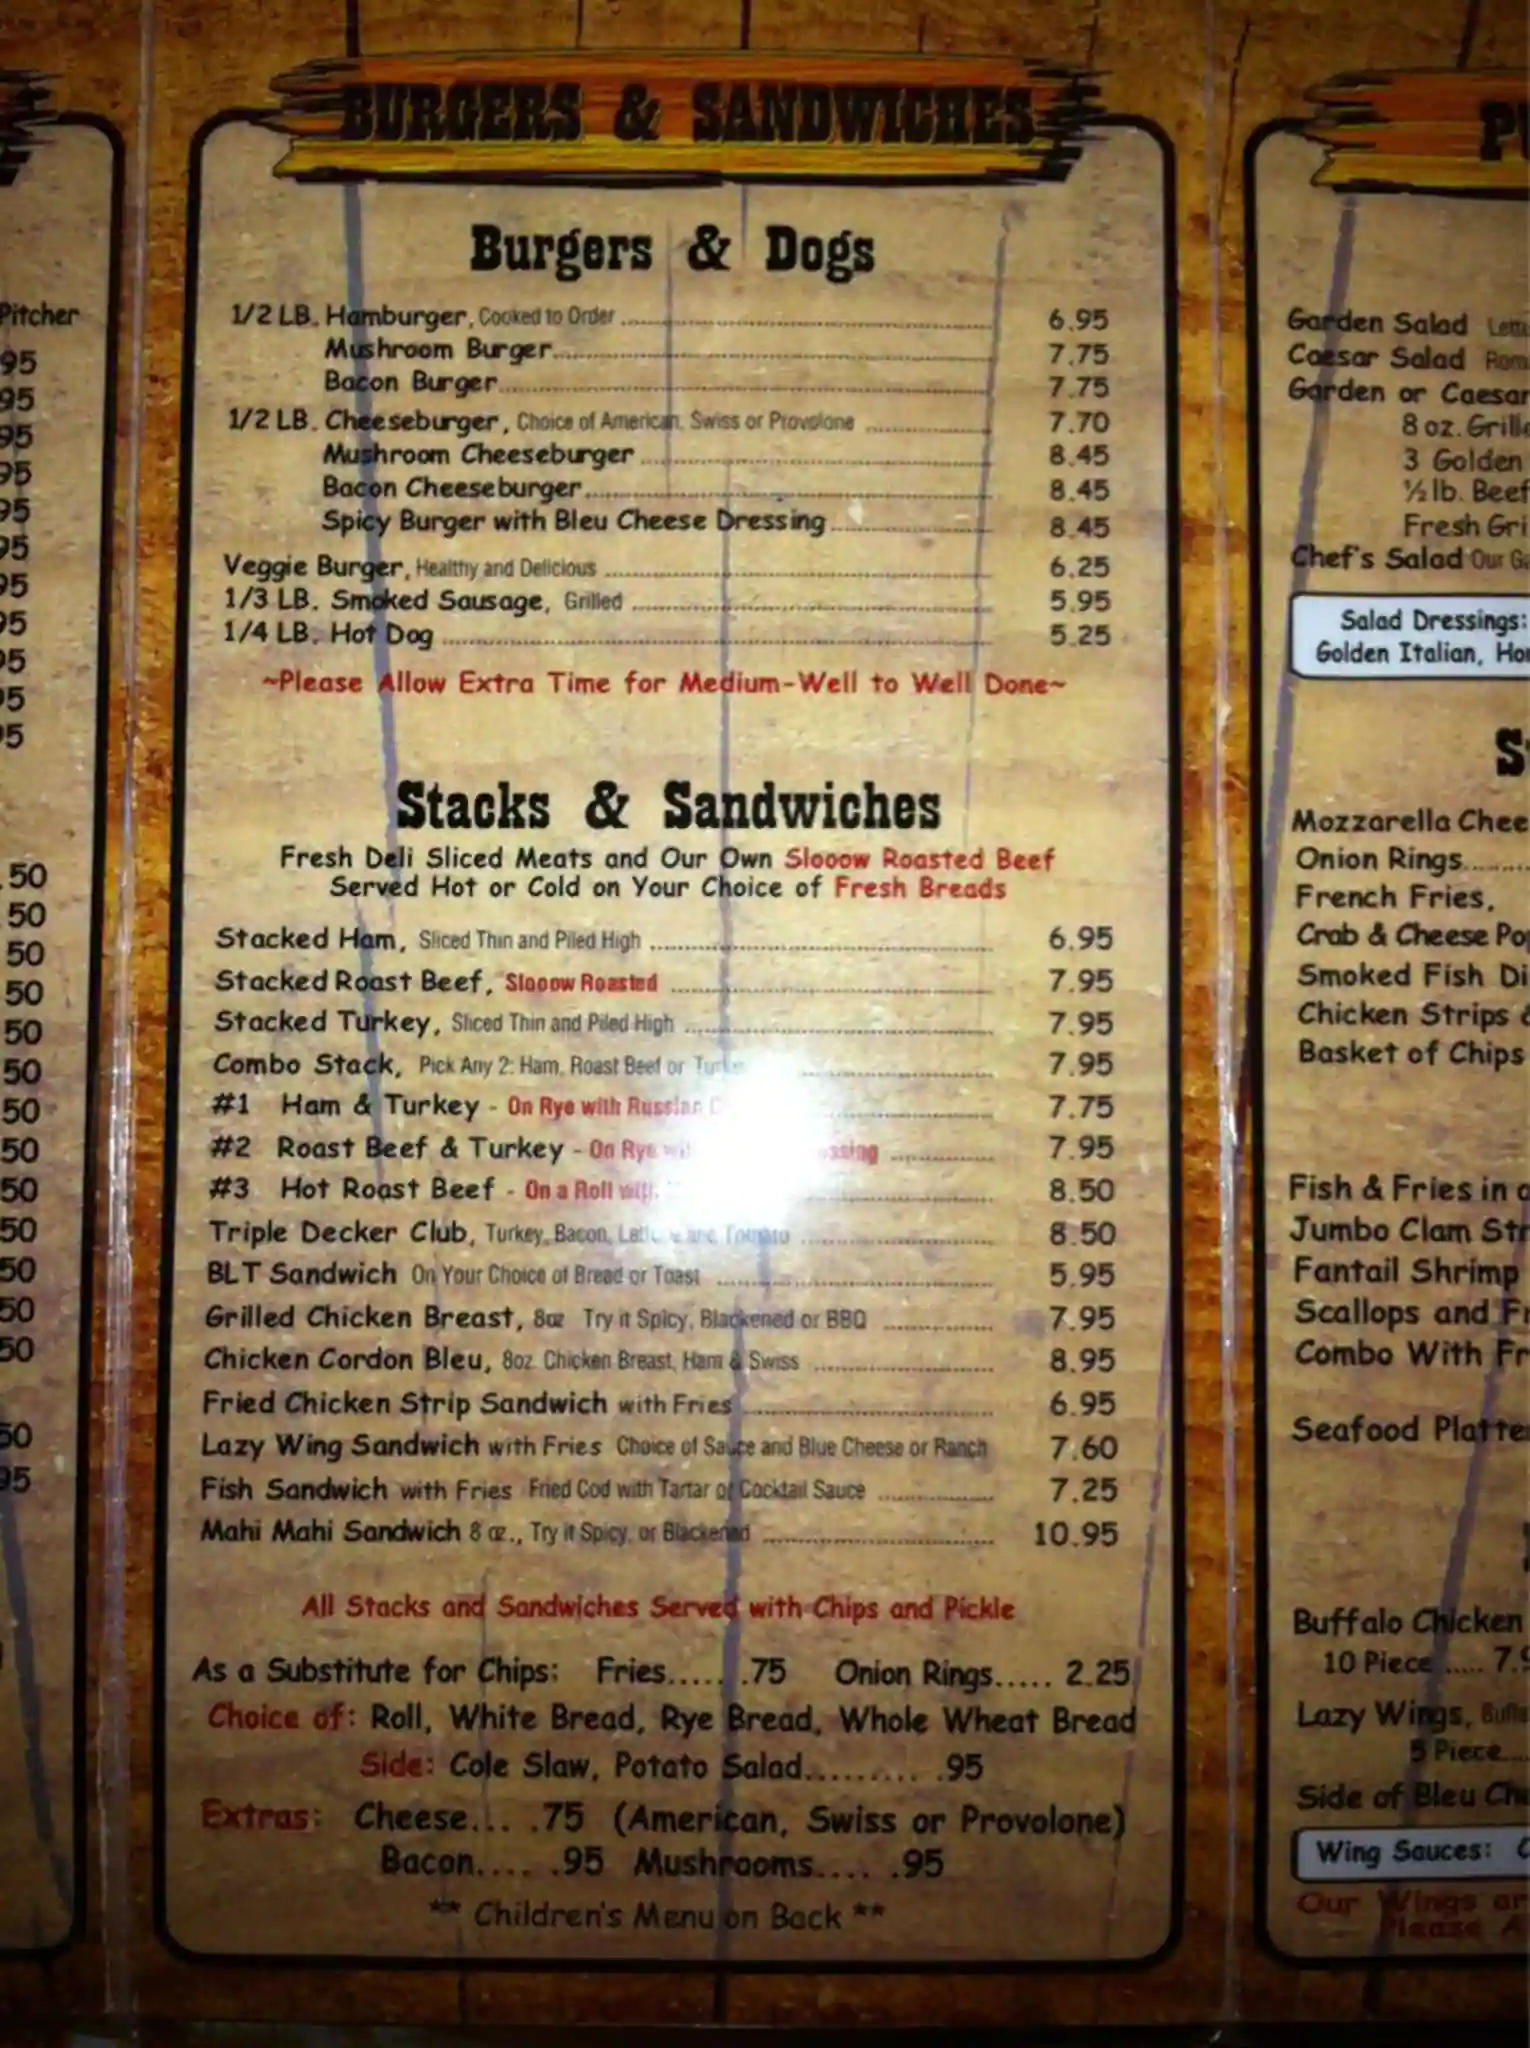 BURGERS & SANDWICHES
Burgers & Dogs
1/2 LB. Hamburger, Cooked to Order 6.95
Mushroom Burger 7.75
Bacon Burger 7.75
1/2 LB. Cheeseburger, Choice of American, Swiss or Provolone 7.70
Mushroom Cheeseburger 8.45
Bacon Cheeseburger 8.45
Spicy Burger with Bleu Cheese Dressing 8.45
Veggie Burger, Healthy and Delicious 6.25
1/3 LB. Smoked Sausage, Grilled 5.95
1/4 LB. Hot Dog 5.25
~Please Allow Extra Time for Medium-Well to Well Done~
Stacks & Sandwiches
Fresh Deli Sliced Meats and Our Own Slooow Roasted Beef
Served Hot or Cold on Your Choice of Fresh Breads
Stacked Ham, Sliced Thin and Piled High 6.95
Stacked Roast Beef, Slooow Roasted 7.95
Stacked Turkey, Sliced Thin and Piled High 7.95
Combo Stack, Pick Any 2: Ham, Roast Beef or 7.95
#1 Ham & Turkey - On Rye with Russian 7.75
#2 Roast Beef & Turkey - On Rye 7.95
#3 Hot Roast Beef - On a Roll with 8.50
Triple Decker Club, Turkey, Bacon, Lettuce and Tomato 8.50
BLT Sandwich On Your Choice of Bread or Toast 5.95
Grilled Chicken Breast, 8oz Try it Spicy, Blackened or BBQ 7.95
Chicken Cordon Bleu, 8oz. Chicken Breast, Ham & Swiss 8.95
Fried Chicken Strip Sandwich with Fries 6.95
Lazy Wing Sandwich with Fries Choice of Sauce and Blue Cheese or Ranch 7.60
Fish Sandwich with Fries Fried Cod with Tartar or Cocktail Sauce 7.25
Mahi Mahi Sandwich 8 oz., Try it Spicy, or Blackened 10.95
All Stacks and Sandwiches Served with Chips and Pickle
As a Substitute for Chips: Fries.......75 Onion Rings..... 2.25
Choice of: Roll, White Bread, Rye Bread, Whole Wheat Bread
Side: Cole Slaw, Potato Salad......... .95
Extras: Cheese... .75 (American, Swiss or Provolone)
Bacon..... .95 Mushrooms..... .95
** Children's Menu on Back **
Pitcher
Garden Salad
Caesar Salad
Garden or Caesar
8 oz.
3 Golden
½ lb. Beef
Fresh
Chef's Salad Our
Salad Dressings:
Golden Italian,
Mozzarella
Onion Rings
French Fries,
Crab & Cheese
Smoked Fish
Chicken Strips
Basket of Chips
Fish & Fries in
Jumbo Clam
Fantail Shrimp
Scallops and
Combo With
Seafood
Buffalo Chicken
10 Piece .....
Lazy Wings,
5 Piece....
Side of Bleu
Wing Sauces:
Our Wings
Please